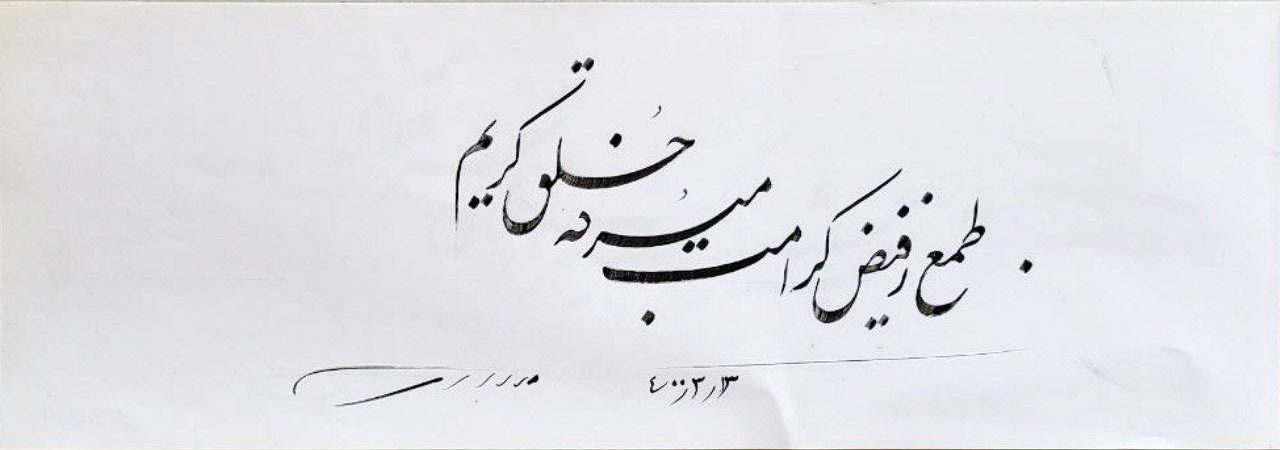 طمع ز فیض کرامت مبُر که خُلق کریم
۴۰۰/۳/۱۳